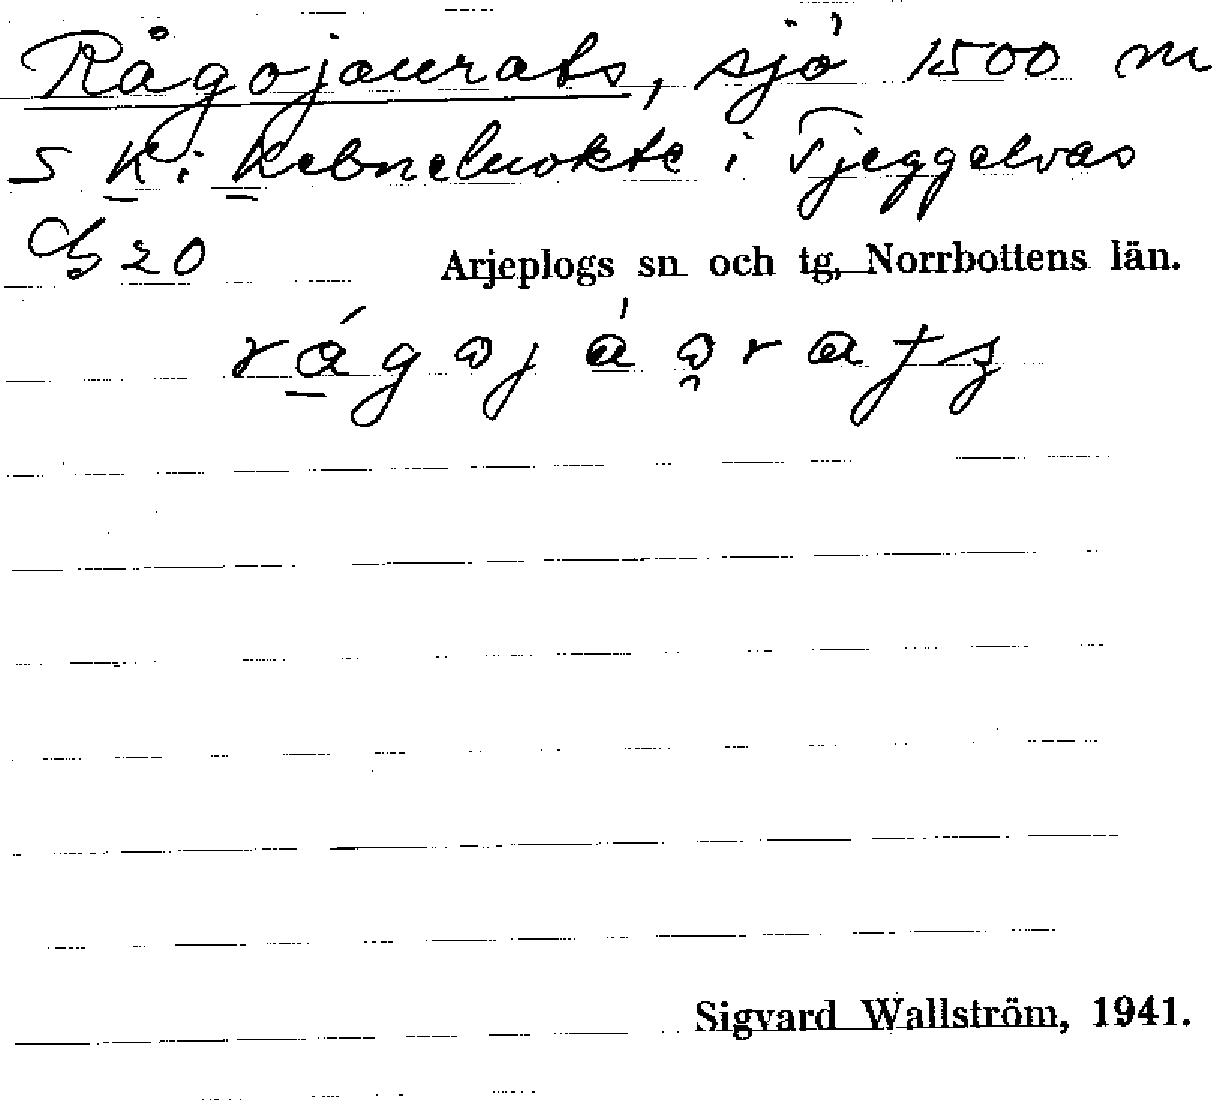 Rågojaurats, sjö 1500 m
S K i Kebneluokte i Tjeggelvas
G 20
Arjeplogs sn och tg, Norrbottens län.
Sigvard Wallström, 1941.